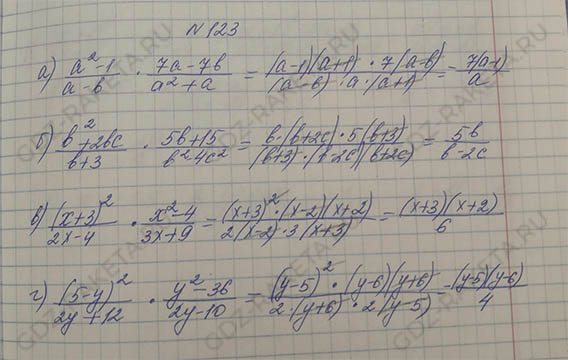 N 123
а) (a²-1)/(a-b) · (7a-7b)/(a²+a) = ((a-1)(a+1)·7(a-b))/((a-b)·a(a+1)) = 7(a-1)/a
б) (b²+2bc)/(b+3) · (5b+15)/(b²-4c²) = (b·(b+2c)·5(b+3))/((b+3)·(b-2c)(b+2c)) = 5b/(b-2c)
в) (x+3)²/(2x-4) · (x²-4)/(3x+9) = ((x+3)²·(x-2)(x+2))/(2(x-2)·3(x+3)) = ((x+3)(x+2))/6
г) (5-y)²/(2y+12) · (y²-36)/(2y-10) = ((y-5)²·(y-6)(y+6))/(2·(y+6)·2(y-5)) = ((y-5)(y-6))/4
GDZ-RAKETA.RU